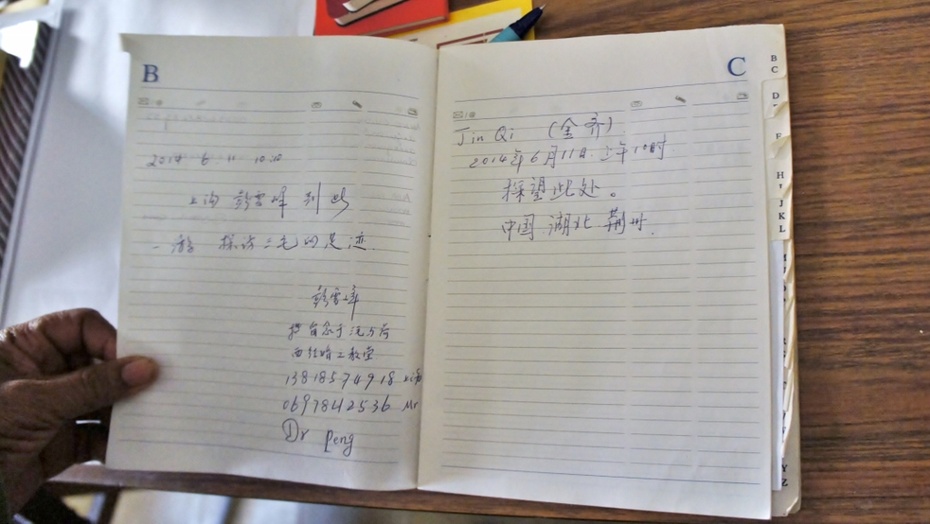 B
2014 6 11 10:20
上海 彭雪峰 到此
一游 探访三毛的足迹.
彭雪峰
于三毛与荷
西结婚之教堂
13818574918 上海
0697842536 Mr
Dr Peng
C
Jin Qi (金齐)
2014年6月11日.上午10时
探望此处。
中国 湖北 荆州.
B
C
D
F
H
J
K
L
Y
Z